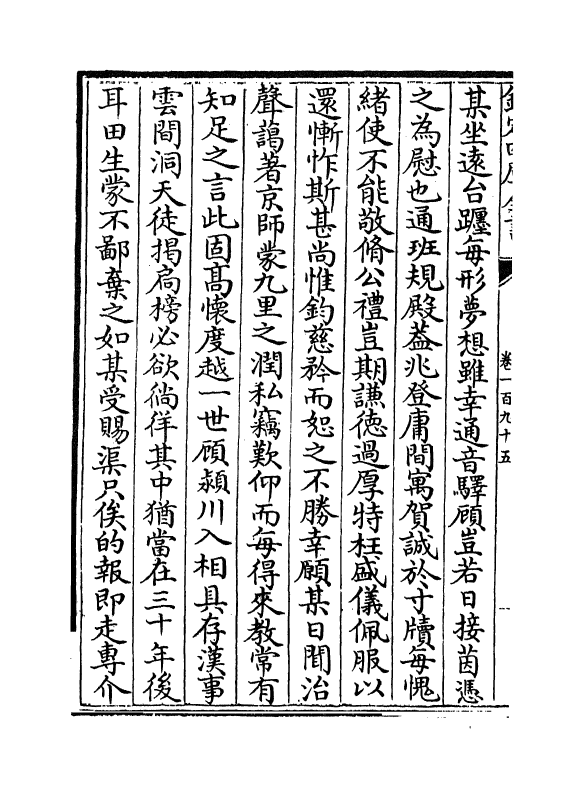 欽定四庫全書
卷一百九十五
某坐遠台躔每形夢想雖幸通音驛顧豈若日接茵憑
之為慰也通班規殿葢兆登庸間寓賀誠於寸牘每愧
緒使不能敬脩公禮豈期謙徳過厚特枉盛儀佩服以
還慚怍斯甚尚惟鈞慈矜而恕之不勝幸願某日聞治
聲藹著京師蒙九里之潤私竊歎仰而每得來教常有
知足之言此固髙懷度越一世顧潁川入相具存漢事
雲間洞天徒掲扄榜必欲徜徉其中猶當在三十年後
耳田生蒙不鄙棄之如某受賜渠只俟的報即走專介